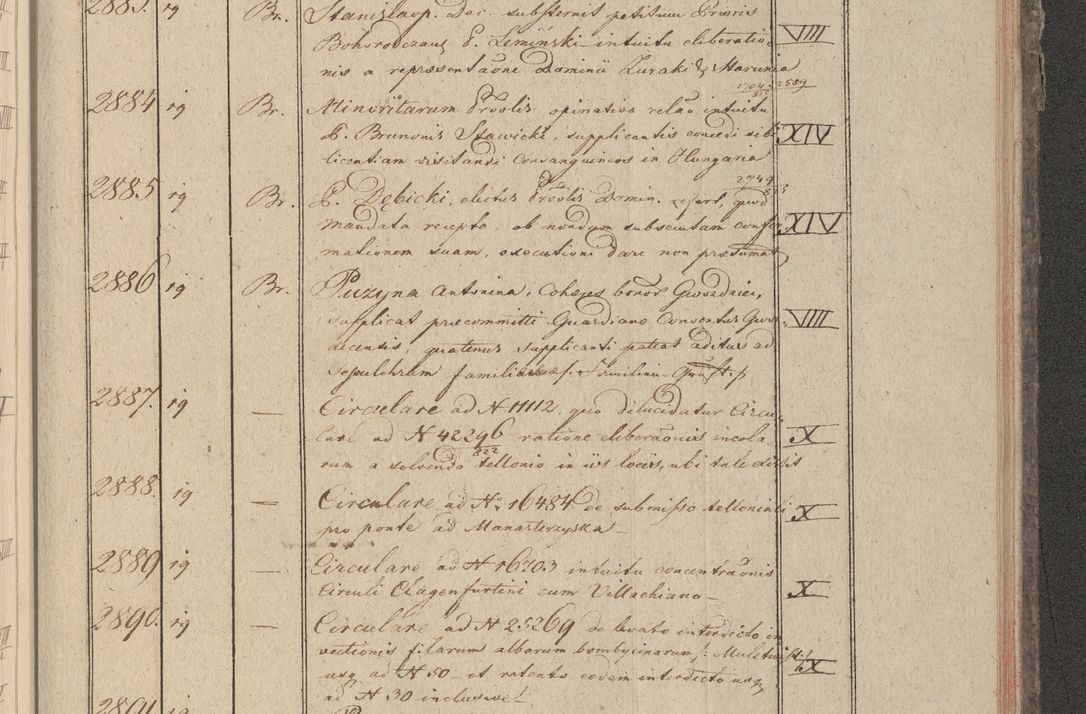 2883. 19 Br. Stanislaop. Dec. substernit petitum Prioris
Bohorodczans P. Lemiński intuitu eliberatio- VIII
nis a repræsentaõne Dominii Zuraki & Harunia
1704 2589
2884 19 Br. Minoritarum Prõvlis opinativa relaõ intuitu 825
P. Brunonis Stawicki, supplicantis concedi sibi XIV
licentiam visitandi consanguineos in Hungaria
2749
2885 19 Br. P. Dębicki, electus Prõvlis Domin. refert, quod 825
mandata recepta, ob nondum subsecutam confir- XIV
mationem suam, executioni dare non præsumat
2886 19 Br. Puzyna Antonina, Cohæres bonor Gwozdziec,
supplicat præcommitti Guardiano Conventus Gwoz- VIII
decensis, quatenus supplicanti pateat aditus ad
sepulchrum
2887. 19 — Circulare ad N 11112, quo dilucidatur Circu-
lare ad N 42296 ratione eliberaõnis incola- X
822
rum a solvendo tellonio in iis locis, ubi tale existit
2888. 19 — Circulare ad N 16484 de submisso telloniali X
pro ponte ad Manasterzyska —
2889 19 — Circulare ad N 16703 intuitu concentraõnis
Circuli Clagenfurtini cum Villachiano — X
2890. 19 — Circulare ad N 25269 de levato interdicto in
vectionis filarum alborum bombycinarum /: Multwist :/ IX
usq ad N 50 — et retento eodem interdicto usq
ad N 30 inclusive!
2891 19